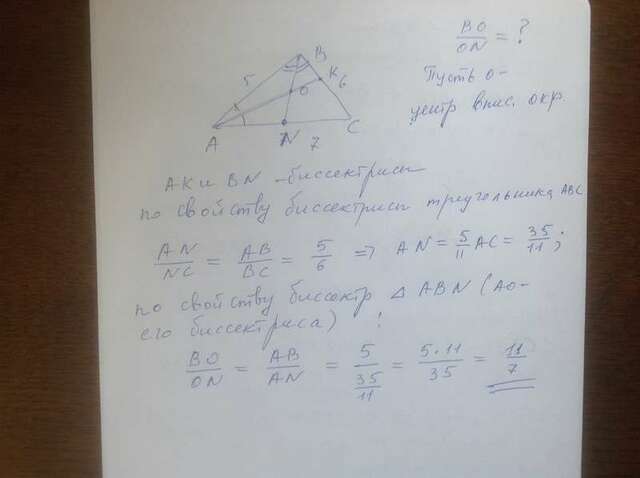 BO/ON = ?
Пусть O-
центр впис. окр.
B
K
5
6
O
A
N
7
C
AK и BN - биссектрисы
по свойству биссектрисы треугольника ABC
AN/NC = AB/BC = 5/6 => AN = 5/11 AC = 35/11;
по свойству биссектр Δ ABN (AO-
его биссектриса) :
BO/ON = AB/AN = 5/(35/11) = 5·11/35 = 11/7